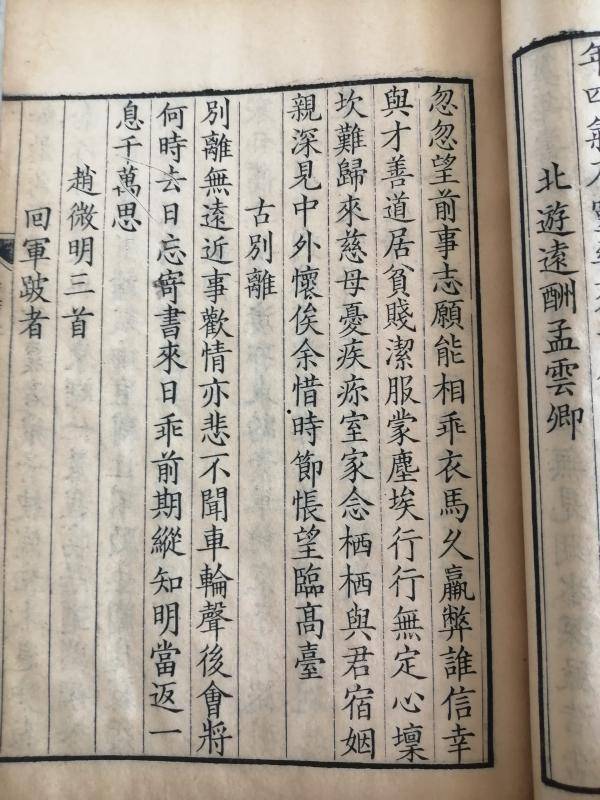 北遊遠酬孟雲卿
忽忽望前事志願能相乖衣馬久羸弊誰信幸
與才善道居貧賤潔服蒙塵埃行行無定心壈
坎難歸來慈母憂疾疢室家念栖栖與君宿姻
親深見中外懷俟余惜時節悵望臨高臺
古別離
別離無遠近事歡情亦悲不聞車輪聲後會將
何時去日忘寄書來日乖前期縱知明當返一
息千萬思
趙微明三首
回軍跛者